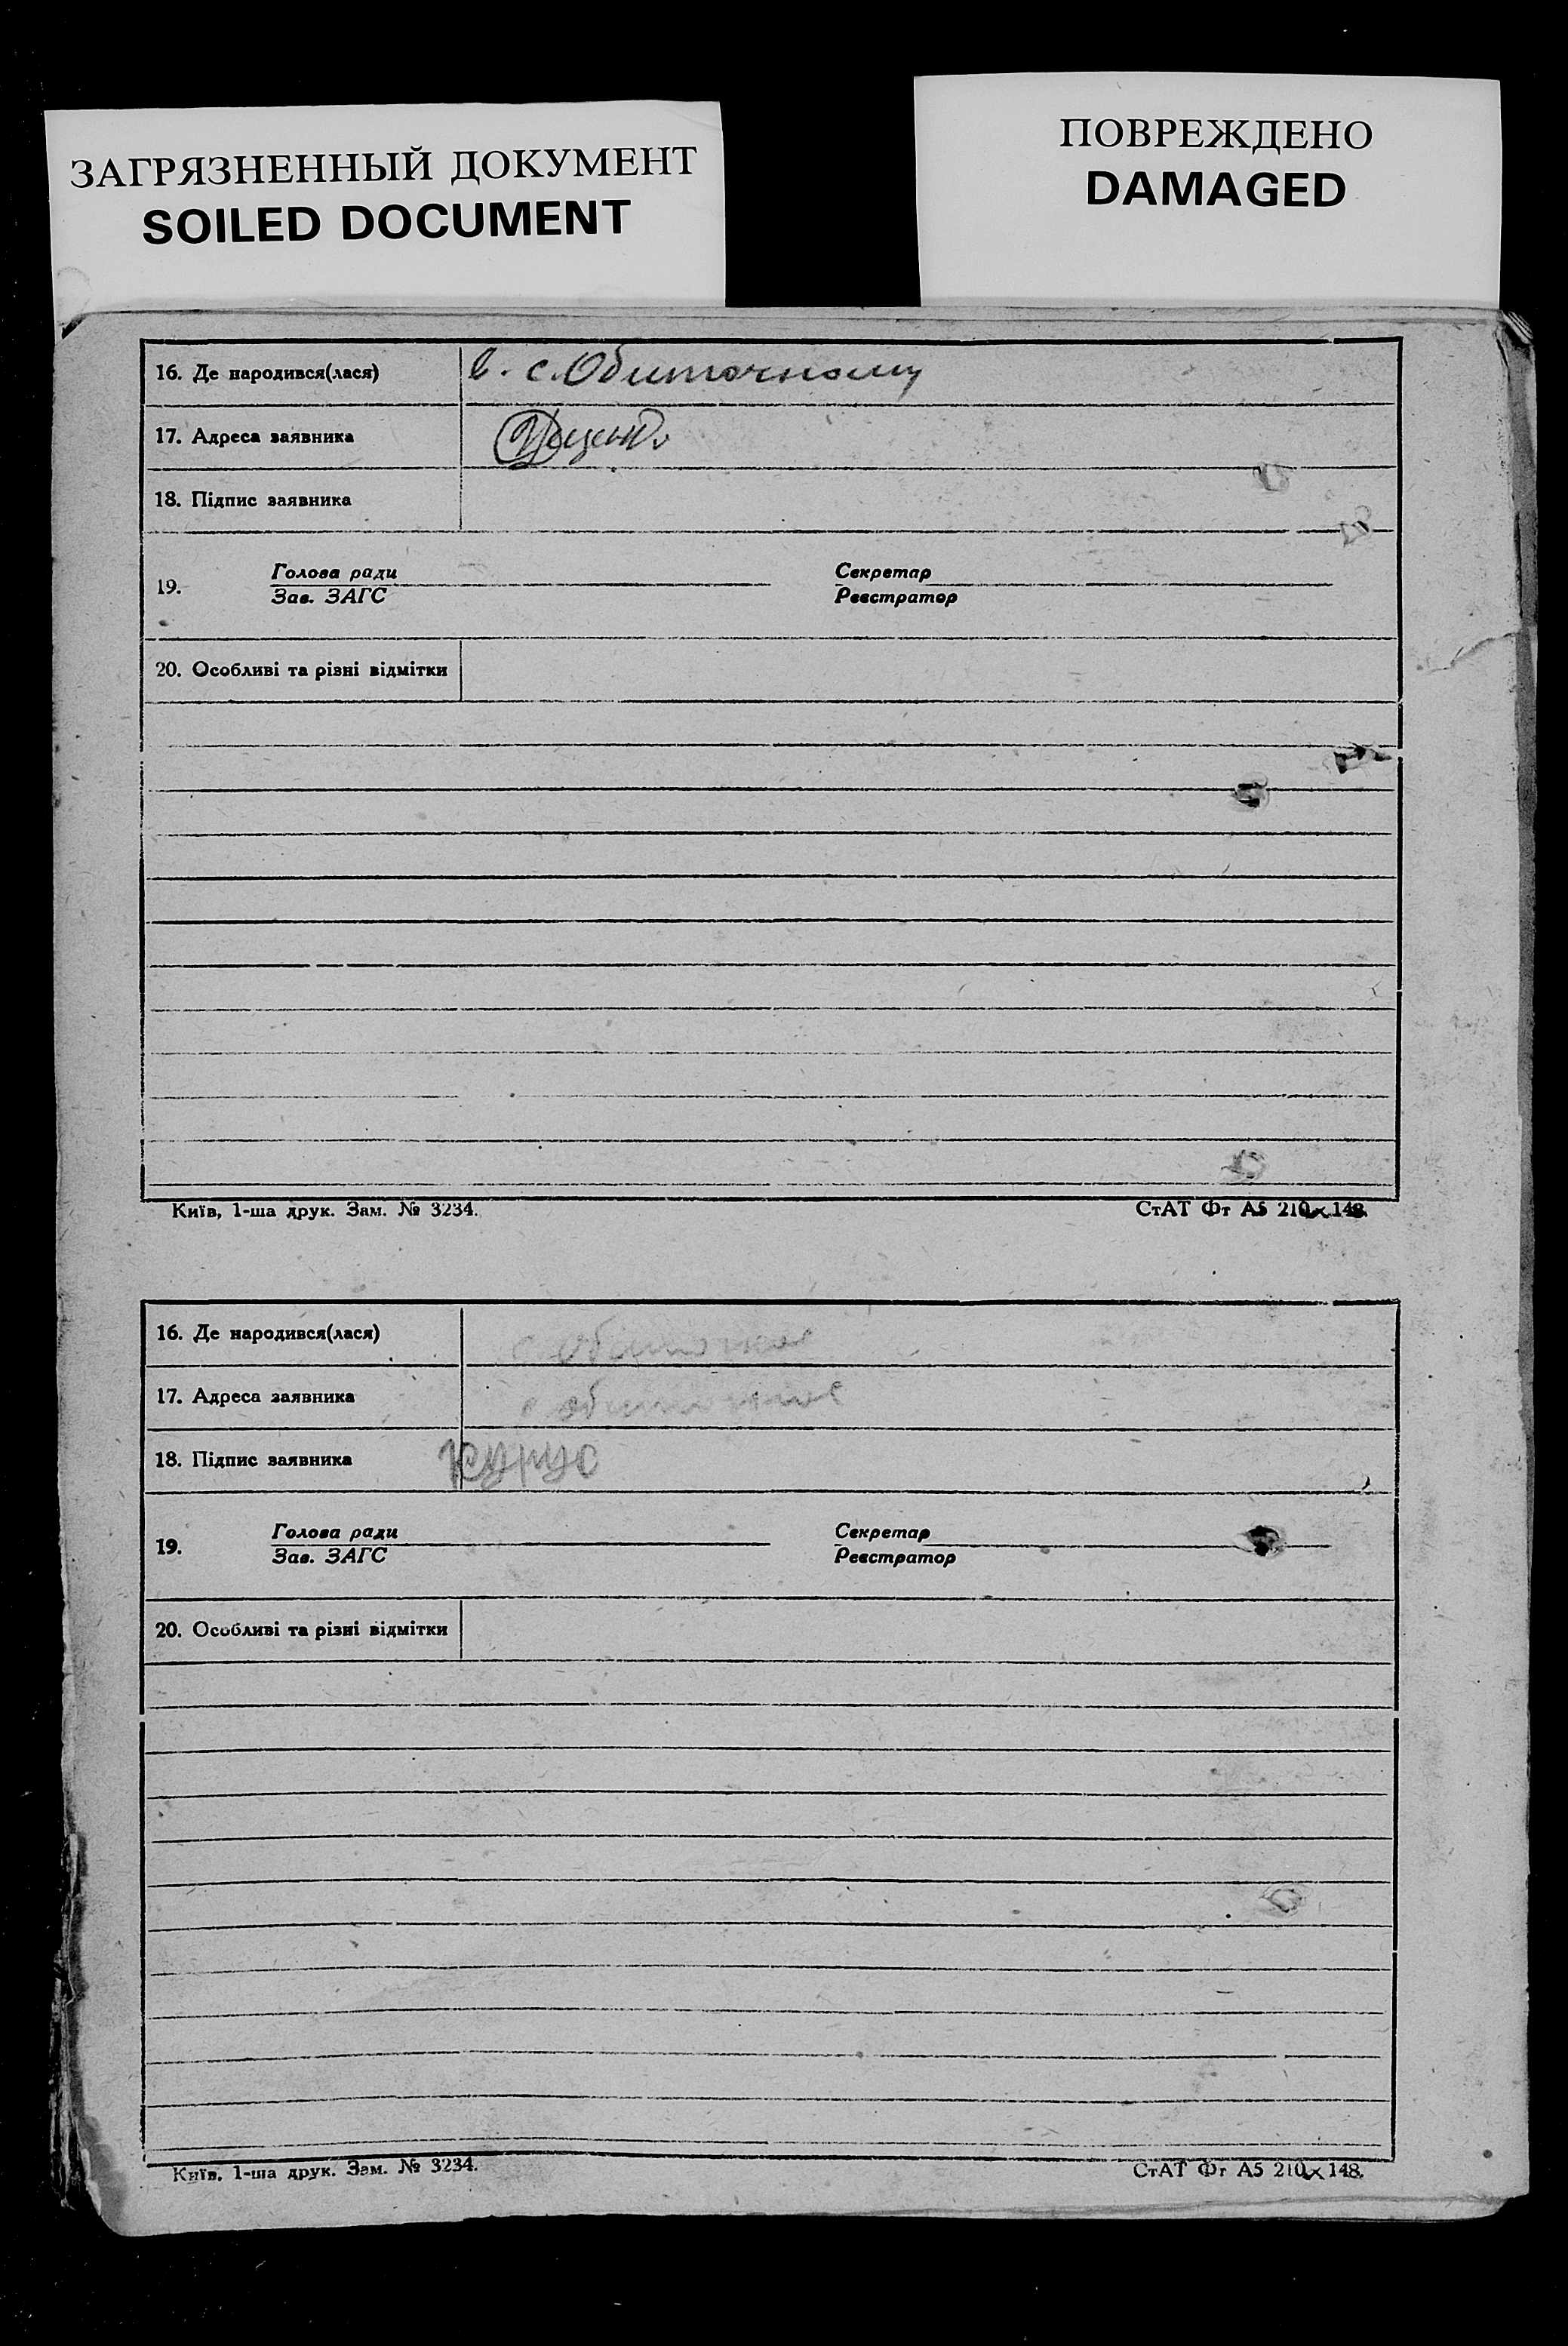 ЗАГРЯЗНЕННЫЙ ДОКУМЕНТ
SOILED DOCUMENT
ПОВРЕЖДЕНО
DAMAGED
16. Де народився(лася) в. с. Обиточному
17. Адреса заявника
18. Підпис заявника
19. Голова ради Секретар
Зав. ЗАГС Реєстратор
20. Особливі та різні відмітки
Київ, 1-ша друк. Зам. № 3234. СтАТ Фт А5 210×148.
16. Де народився(лася) с обиточное
17. Адреса заявника с обиточное
18. Підпис заявника Курус
19. Голова ради Секретар
Зав. ЗАГС Реєстратор
20. Особливі та різні відмітки
Київ, 1-ша друк. Зам. № 3234. СтАТ Фт А5 210×148.